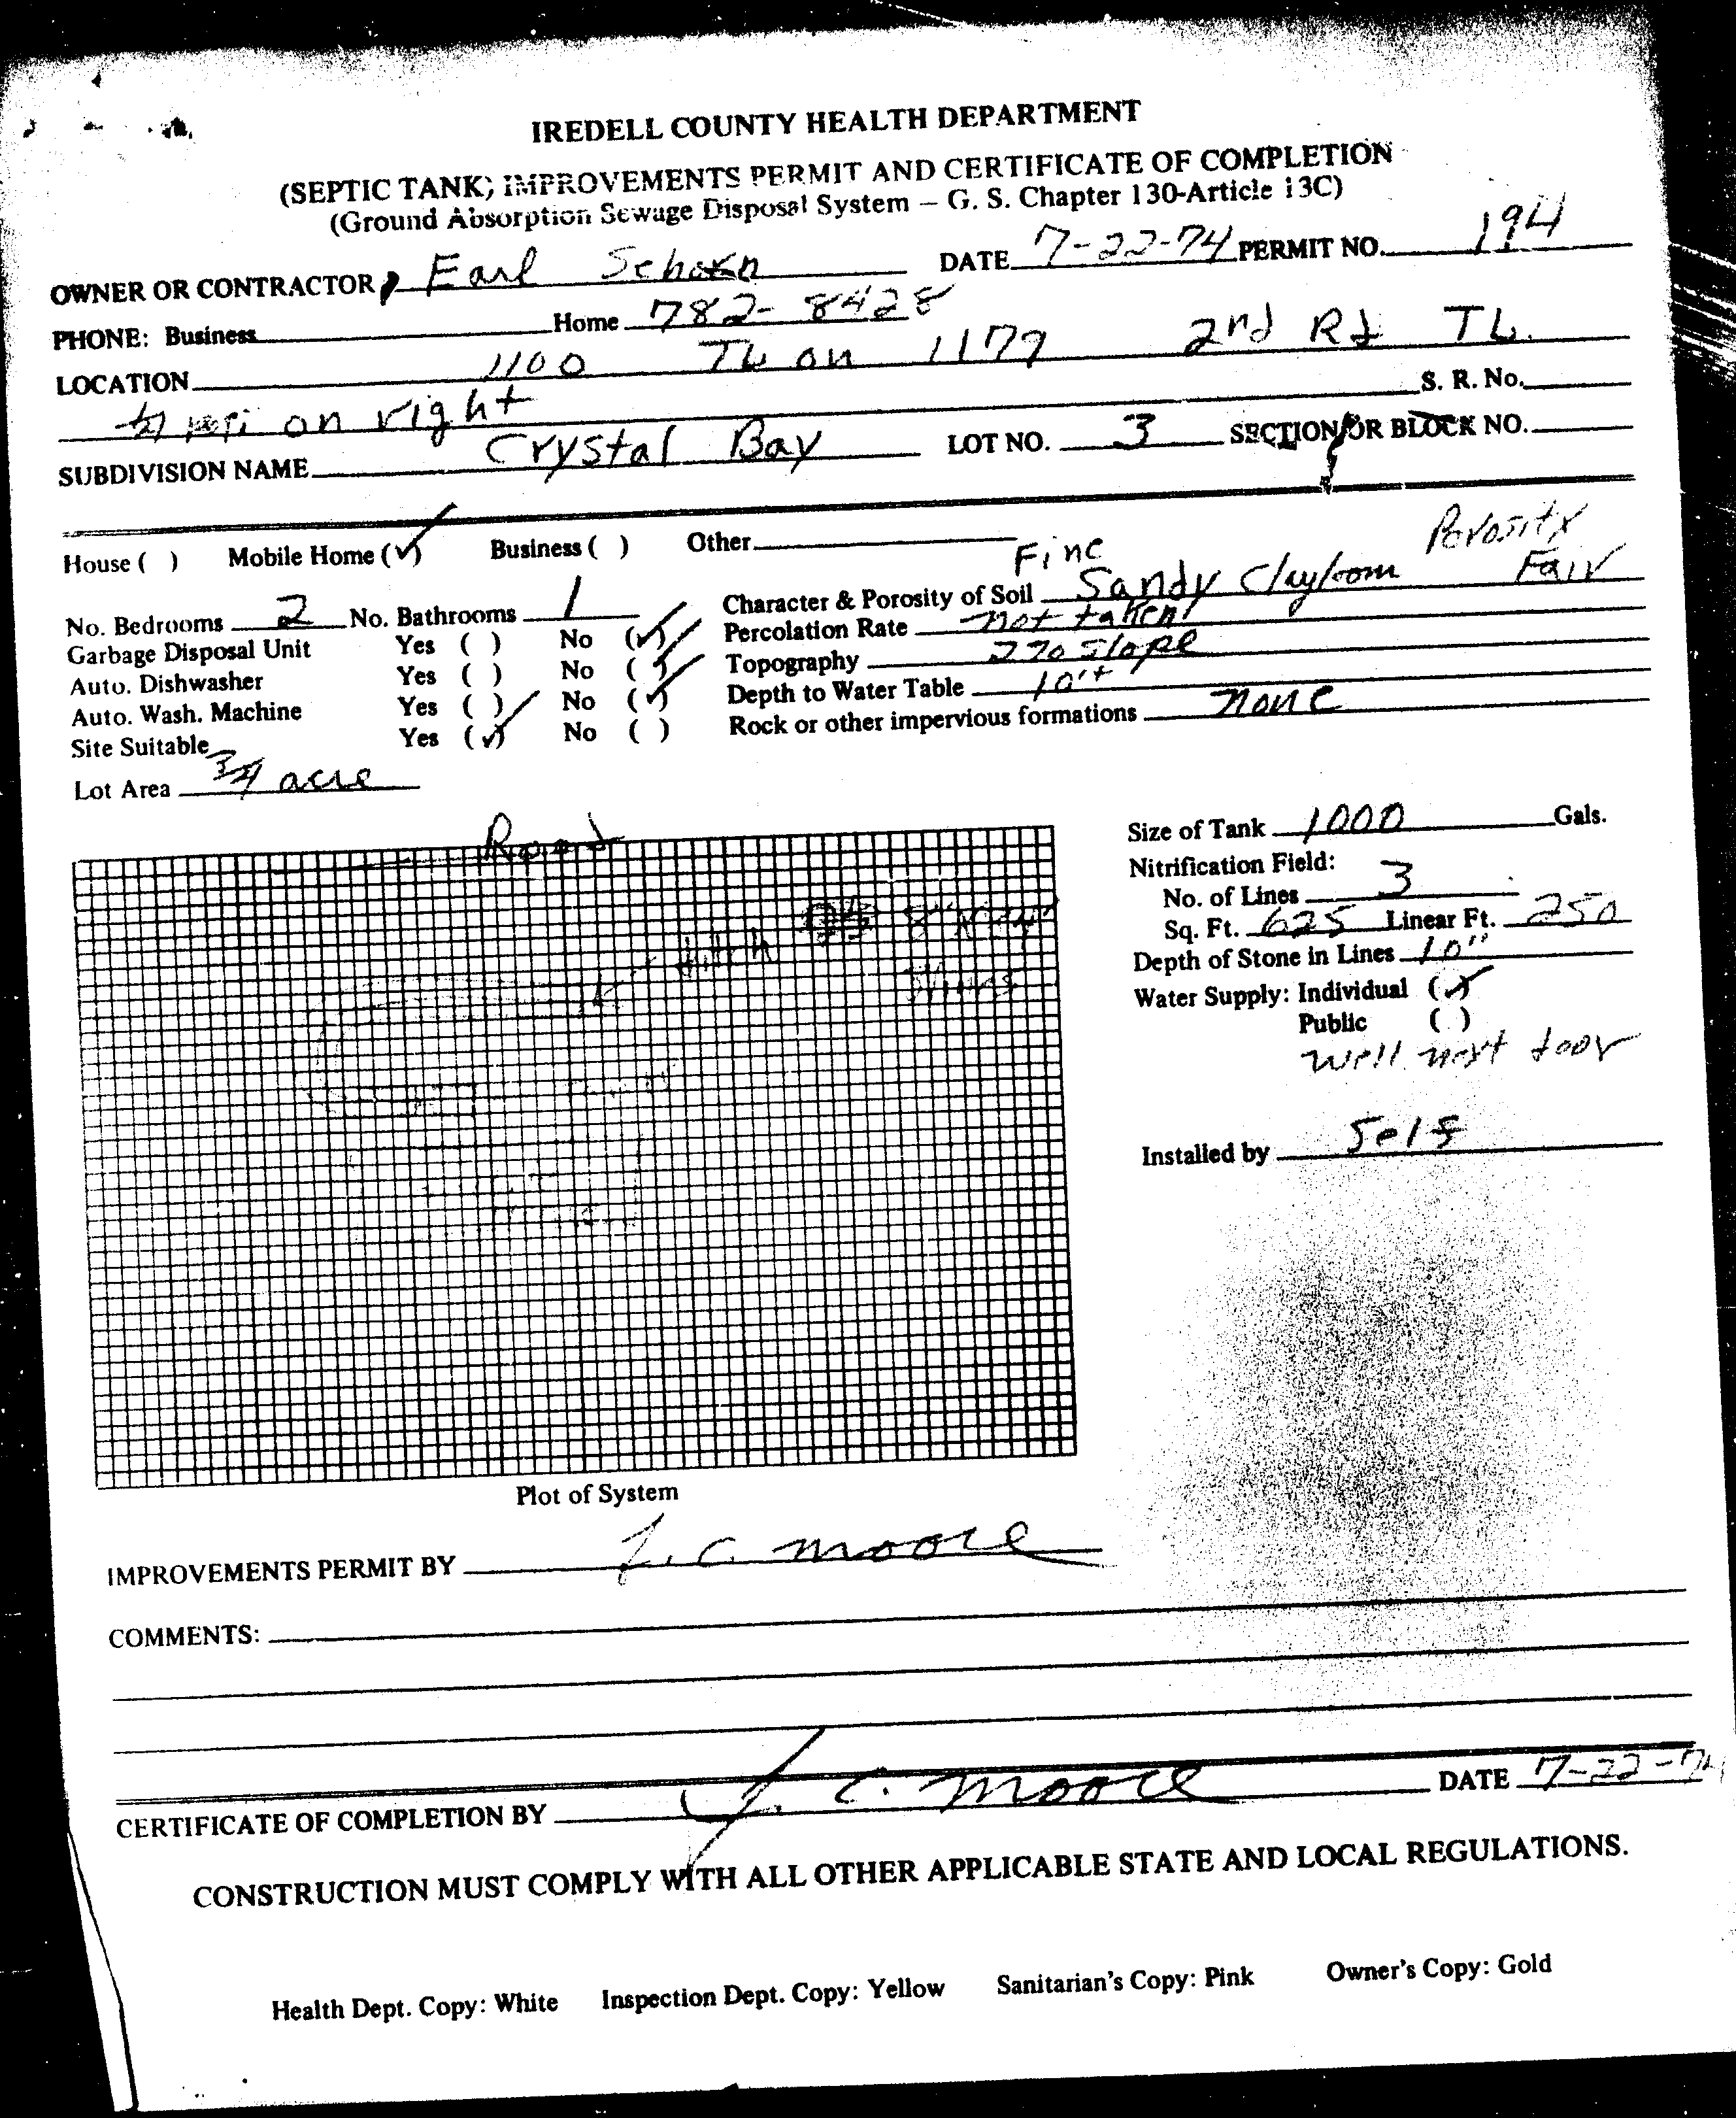 IREDELL COUNTY HEALTH DEPARTMENT
(SEPTIC TANK) IMPROVEMENTS PERMIT AND CERTIFICATE OF COMPLETION
(Ground Absorption Sewage Disposal System – G. S. Chapter 130-Article 13C)
OWNER OR CONTRACTOR Earl DATE 7-22-74 PERMIT NO. 194
PHONE: Business Home 782-8428
LOCATION 1100 TL on 1179 2nd Rd TL.
on right S. R. No.
SUBDIVISION NAME Crystal Bay LOT NO. 3 SECTION OR BLOCK NO.
House ( ) Mobile Home (✓) Business ( ) Other
Porosity
Fine
No. Bedrooms 2 No. Bathrooms 1 Character & Porosity of Soil Sandy Clayloom Fair
Garbage Disposal Unit Yes ( ) No (✓) Percolation Rate not taken
Auto. Dishwasher Yes ( ) No (✓) Topography 2% Slope
Auto. Wash. Machine Yes ( ) No (✓) Depth to Water Table 10'+
Site Suitable Yes (✓) No ( ) Rock or other impervious formations none
Lot Area 3/4 acre
Road
Size of Tank 1000 Gals.
Nitrification Field:
No. of Lines 3
Sq. Ft. 625 Linear Ft. 250
Depth of Stone in Lines 10"
Water Supply: Individual (✓)
Public ( )
well next door
Installed by Self
Plot of System
IMPROVEMENTS PERMIT BY J. C. Moore
COMMENTS:
CERTIFICATE OF COMPLETION BY J. C. Moore DATE 7-22-74
CONSTRUCTION MUST COMPLY WITH ALL OTHER APPLICABLE STATE AND LOCAL REGULATIONS.
Health Dept. Copy: White Inspection Dept. Copy: Yellow Sanitarian's Copy: Pink Owner's Copy: Gold